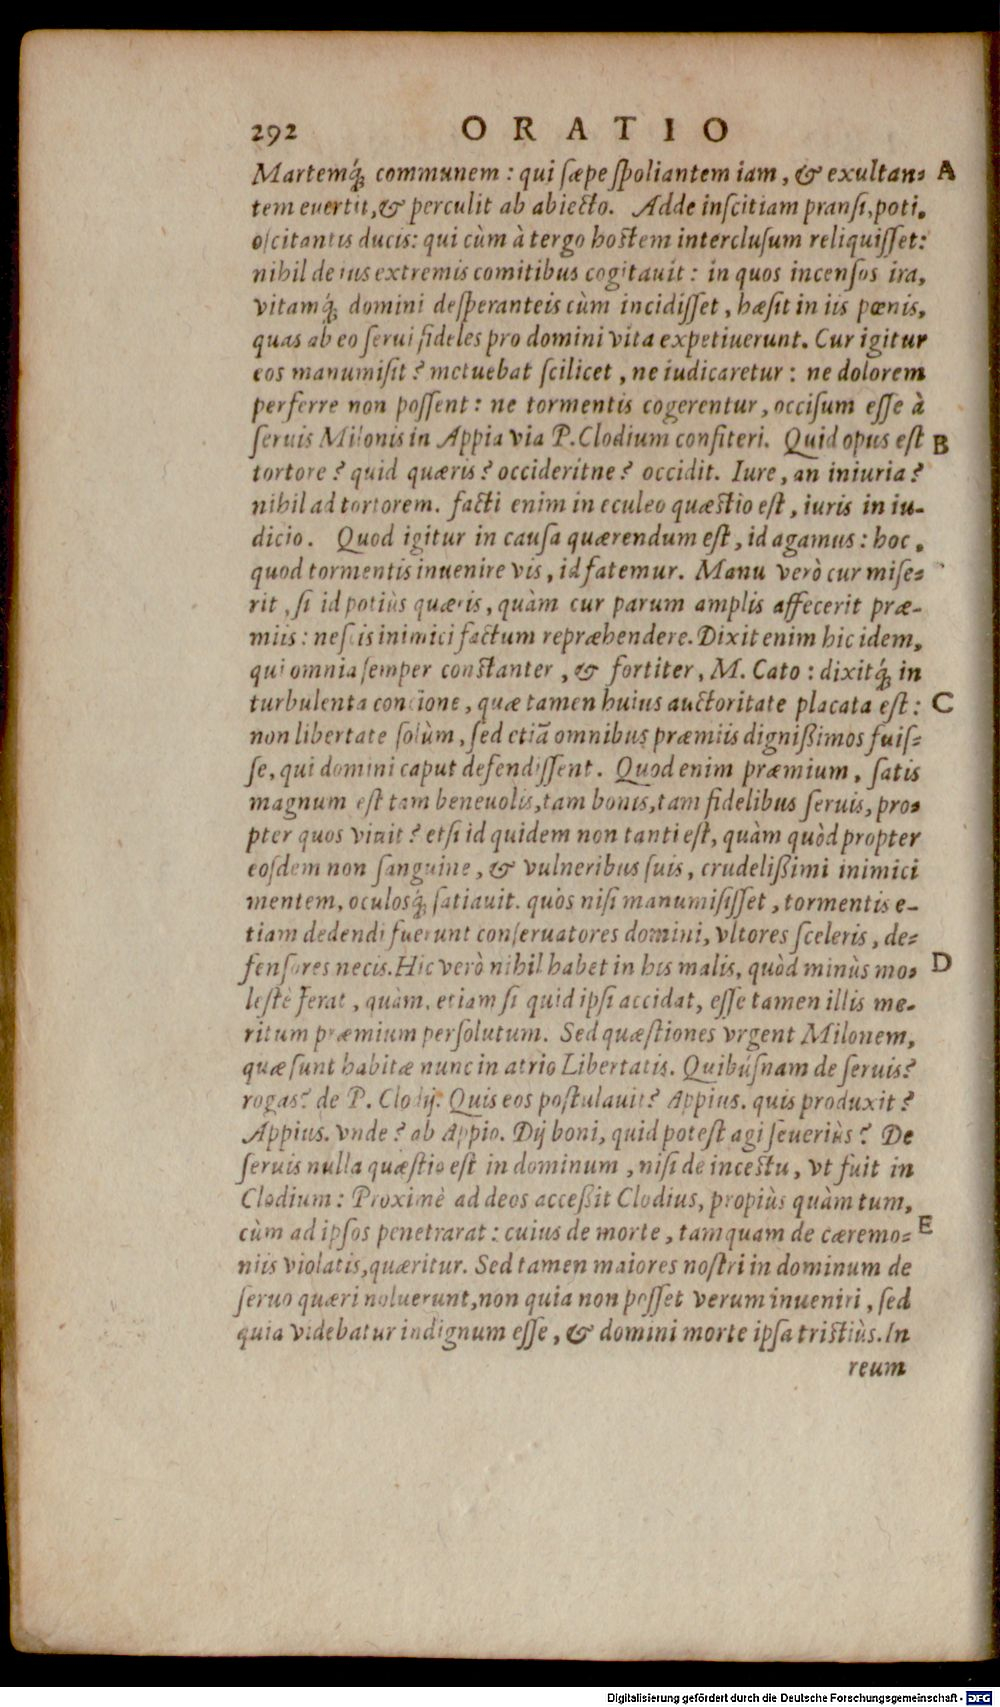 292 ORATIO
Martemq́; communem : qui sæpe spoliantem iam, & exultan= A
tem euertit, & perculit ab abiecto. Adde inscitiam pransi, poti,
oscitantis ducis: qui cùm à tergo hostem interclusum reliquisset:
nihil de eius extremis comitibus cogitauit : in quos incensos ira,
vitamq́; domini desperanteis cùm incidisset, hæsit in iis pœnis,
quas ab eo serui fideles pro domini vita expetiuerunt. Cur igitur
eos manumisit? metuebat scilicet, ne iudicaretur: ne dolorem
perferre non possent: ne tormentis cogerentur, occisum esse à
seruis Milonis in Appia via P. Clodium confiteri. Quid opus est B
tortore? quid quæris? occideritne? occidit. Iure, an iniuria?
nihil ad tortorem. facti enim in eculeo quæstio est, iuris in iu-
dicio. Quod igitur in causa quærendum est, id agamus: hoc,
quod tormentis inuenire vis, id fatemur. Manu verò cur mise=
rit, si id potiùs quæris, quàm cur parum amplis affecerit præ-
miis: nescis inimici factum repræhendere. Dixit enim hic idem,
qui omnia semper constanter, & fortiter, M. Cato: dixitq́; in
turbulenta concione, quæ tamen huius auctoritate placata est: C
non libertate solùm, sed etiã omnibus præmiis dignißimos fuis=
se, qui domini caput defendissent. Quod enim præmium, satis
magnum est tam beneuolis, tam bonis, tam fidelibus seruis, pro=
pter quos viuit? etsi id quidem non tanti est, quàm quòd propter
eosdem non sanguine, & vulneribus suis, crudelißimi inimici
mentem, oculosq́; satiauit. quos nisi manumisisset, tormentis e-
tiam dedendi fuerunt conseruatores domini, vltores sceleris, de=
fensores necis. Hic verò nihil habet in his malis, quòd minùs mo= D
lestè ferat, quàm, etiam si quid ipsi accidat, esse tamen illis me-
ritum præmium persolutum. Sed quæstiones vrgent Milonem,
quæ sunt habitæ nunc in atrio Libertatis. Quibúsnam de seruis?
rogas? de P. Clodij. Quis eos postulauit? Appius. quis produxit?
Appius. vnde? ab Appio. Dij boni, quid potest agi seueriùs? De
seruis nulla quæstio est in dominum, nisi de incestu, vt fuit in
Clodium: Proximè ad deos acceßit Clodius, propiùs quàm tum,
cùm ad ipsos penetrarat: cuius de morte, tamquam de cæremo= E
niis violatis, quæritur. Sed tamen maiores nostri in dominum de
seruo quæri noluerunt, non quia non posset verum inueniri, sed
quia videbatur indignum esse, & domini morte ipsa tristiùs. In
reum
Digitalisierung gefördert durch die Deutsche Forschungsgemeinschaft - DFG